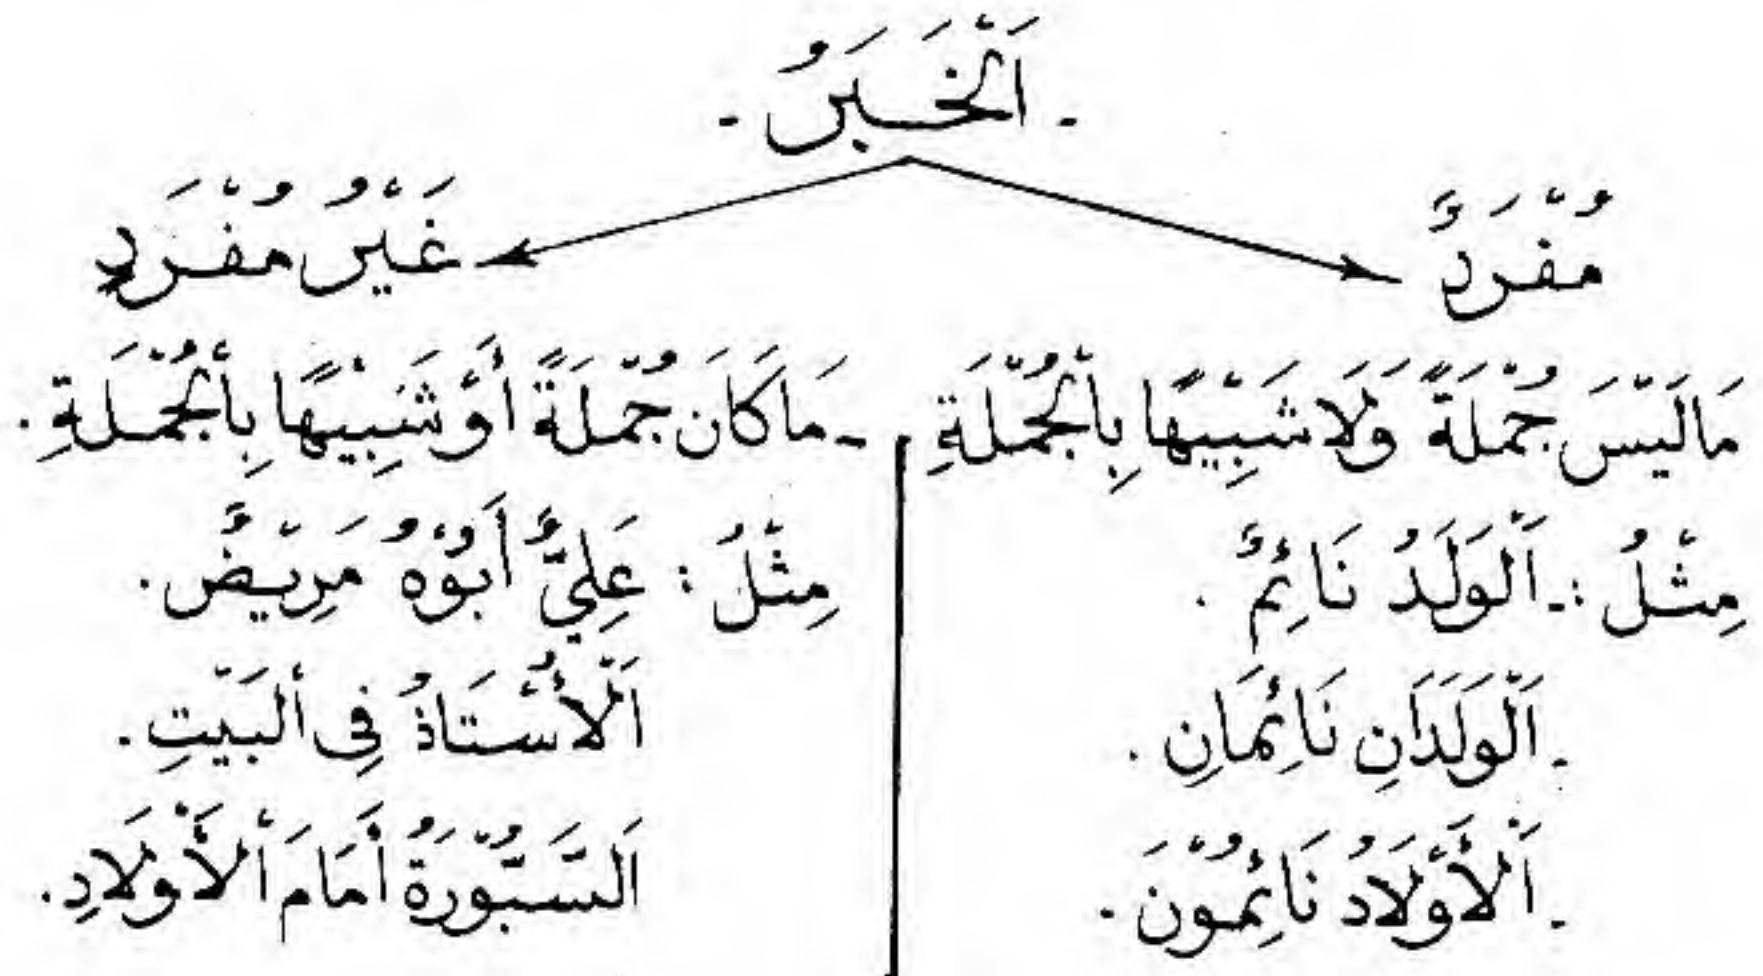 - اَلْخَبَرُ -
مُفْرَدٌ
مَالَيْسَ جُمْلَةً وَلَا شَبِيْهًا بِالْجُمْلَةِ
مِثْلُ :- اَلْوَلَدُ نَائِمٌ .
- اَلْوَلَدَانِ نَائِمَانِ .
- اَلْأَوْلَادُ نَائِمُوْنَ .
غَيْرُ مُفْرَدٍ
- مَاكَانَ جُمْلَةً أَوْ شَبِيْهًا بِالْجُمْلَةِ .
مِثْلُ : عَلِيٌّ أَبُوْهُ مَرِيْضٌ .
اَلْأُسْتَاذُ فِى الْبَيْتِ .
اَلسَّبُّوْرَةُ أَمَامَ الْأَوْلَادِ .